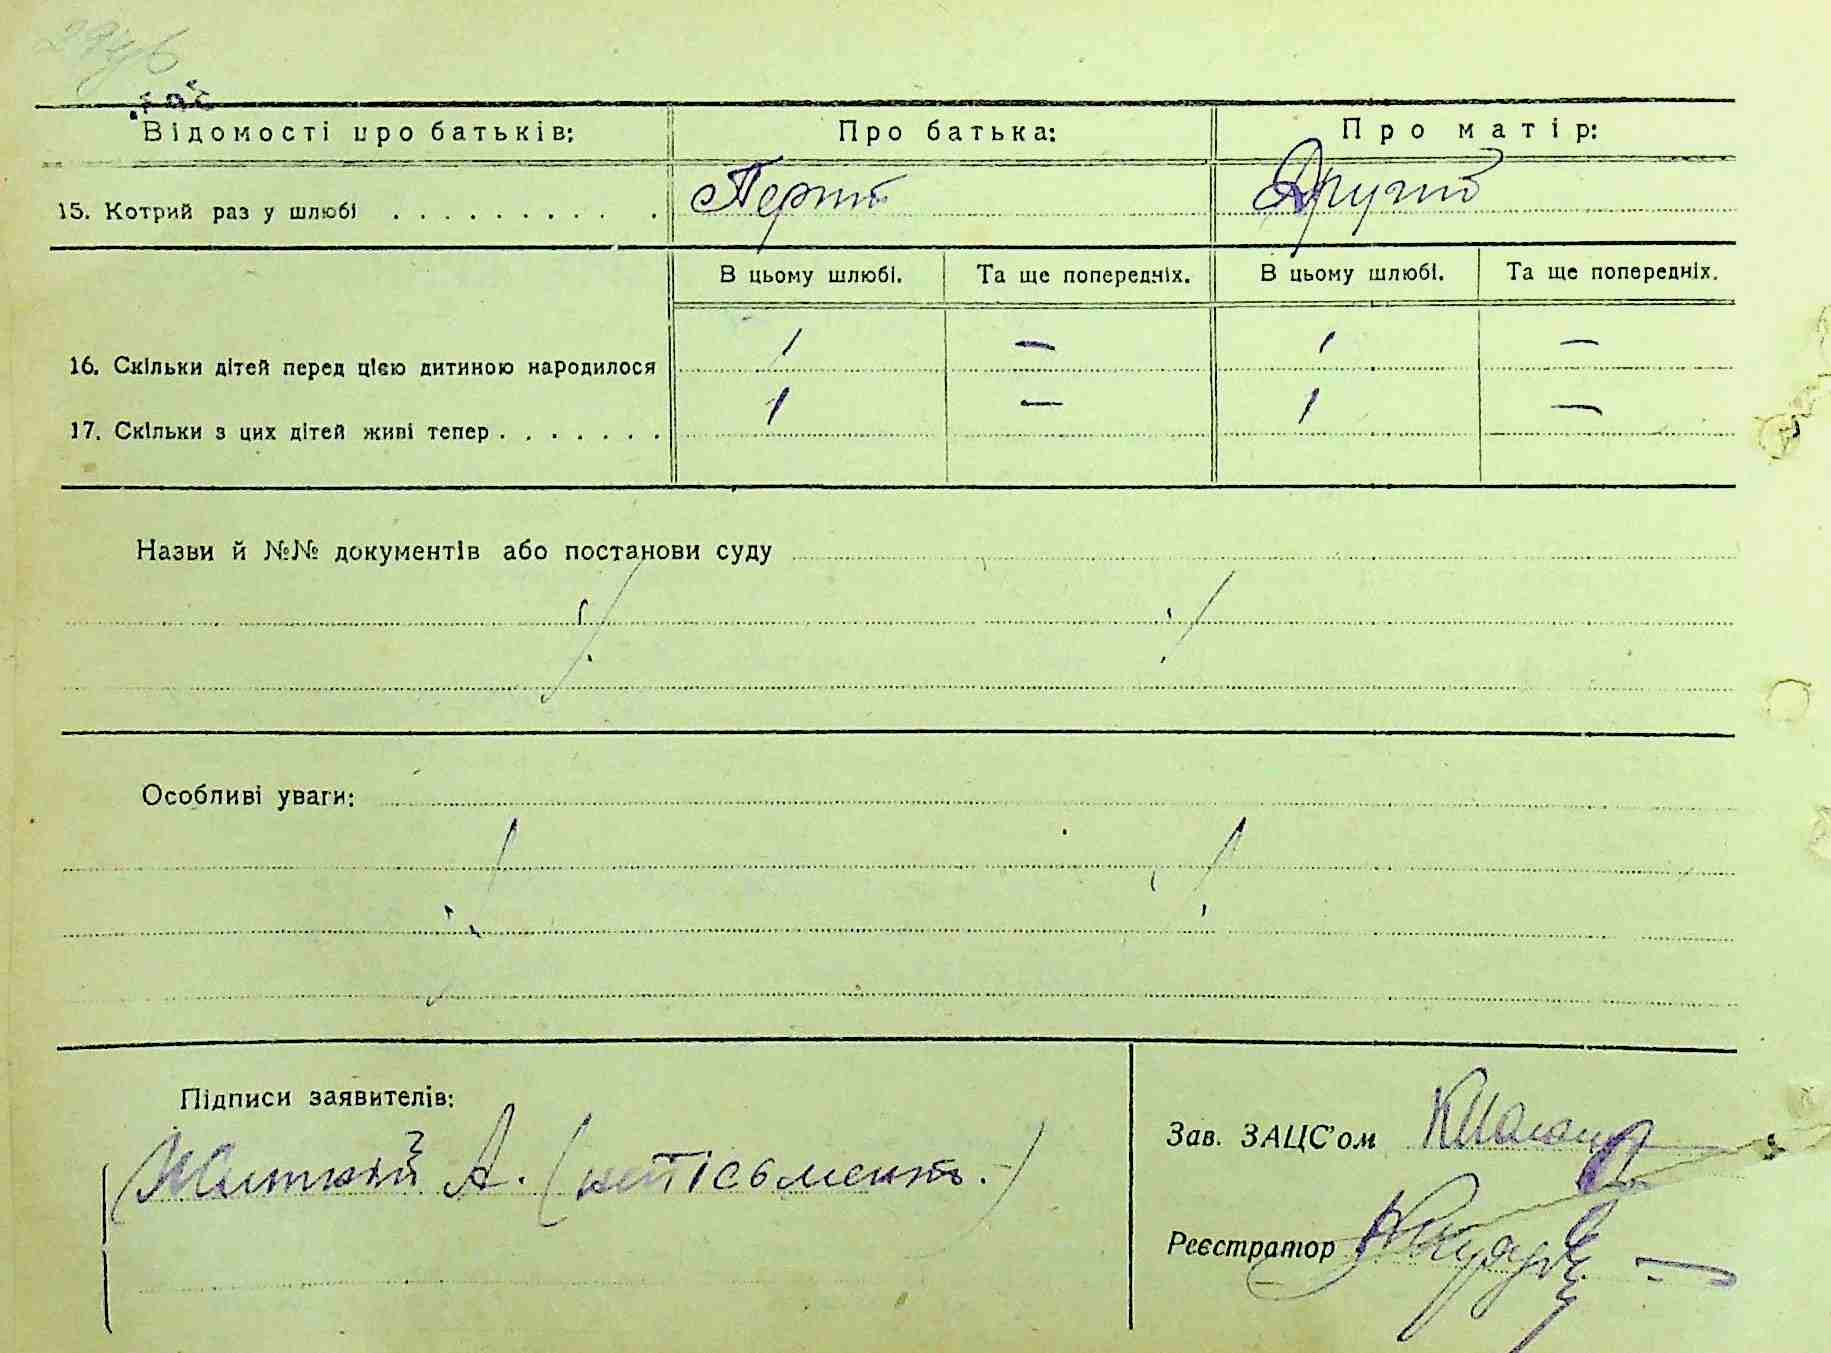 Відомості про батьків:
Про батька:
Про матір:
15. Котрий раз у шлюбі . . . . . . . . . .
Перший
Другий
В цьому шлюбі.
Та ще попередніх.
В цьому шлюбі.
Та ще попередніх.
16. Скільки дітей перед цією дитиною народилося
1
—
1
—
17. Скільки з цих дітей живі тепер . . . . . . .
1
—
1
—
Назви й №№ документів або постанови суду
Особливі уваги:
Підписи заявителів:
А. (непісьменть.)
Зав. ЗАЦС'ом
Реєстратор